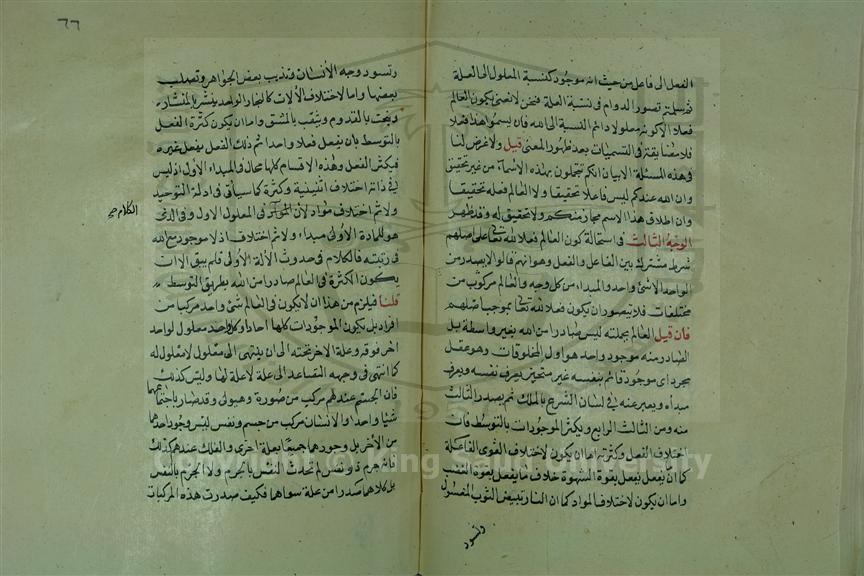 الفعل الى فاعل من حيث انه موجود كنسبة المعلول الى العلة
ثم سلمتم تصور الدوام فى نسبة العلة فنحن لا نعنى بكون العالم
فعلا الا كونه معلولا دائم النسبة الى الله فان لم يسموا هذا فعلا
فلا مضايقة فى التسميات بعد ظهور المعنى قيل ولا غرض لنا
فى هذه المسئلة الا بيان انكم تتجملون بهذه الاسماء من غير تحقيق
وان الله عندكم ليس فاعلا تحقيقا ولا العالم فعله تحقيقا
وان اطلاق هذا الاسم مجاز منكم ولا تحقيق له وقد ظهر
الوجه الثالث فى استحالة كون العالم فعلا لله تعالى على اصلهم
شرط مشترك بين الفاعل والفعل وهو انهم قالوا لا يصدر من
الواحد الا شئ واحد والمبداء من كل وجه والعالم مركب من
مختلفات فلا يتصور ان يكون فعلا لله تعالى بموجب اصلهم
فان قيل العالم بجملته ليس صادرا من الله بغير واسطة بل
الصادر منه موجود واحد هو اول المخلوقات وهو عقل
مجرد اى موجود قائم بنفسه غير متحيز يعرف نفسه ويعرف
مبداه ويعبر عنه فى لسان الشرع بالملك ثم يصدر الثالث
منه ومن الثالث الرابع ويكثر الموجودات بالتوسط فان
اختلاف الفعل وكثرته اما ان يكون لاختلاف القوى الفاعلة
كما انا نفعل بقوة الشهوة خلاف ما نفعل بقوة الغضب
واما ان يكون لاختلاف المواد كما ان النار تبيض الثوب المغسول
وتسود
٦٦
وتسود وجه الانسان وتذيب بعض الجواهر وتصلب
بعضها واما لاختلاف الآلات كالنجار الواحد ينشر بالمنشار
وينحت بالقدوم ويثقب بالمثقب واما ان يكون كثرة الفعل
بالتوسط بان يفعل فعلا واحدا ثم ذلك الفعل يفعل غيره
فيكثر الفعل وهذه الاقسام كلها محال فى المبداء الاول اذ ليس
فى ذاته اختلاف اثنينية وكثرة كما سيأتى فى ادلة التوحيد
ولا ثم اختلاف مواد لان الكلام فى المعلول الاول وفى الذى
الكلام صح
هو المادة الاولى مبداء ولا ثم اختلاف اذ لا موجود مع الله
فى رتبته فالكلام فى حدوث الآلة الاولى فلم يبق الا ان
يكون الكثرة فى العالم صادرا من الله بطريق التوسط
قلنا فيلزم من هذا ان لا يكون فى العالم شئ واحد مركبا من
افراد بل يكون الموجودات كلها احادا وكل واحد معلول لواحد
اخر فوقه وعلة لاخر تحته الى ان ينتهى الى معلول لا معلول له
كما انتهى فى وجهه المتصاعد الى علة لا علة لها وليس كذلك
فان الجسم عندهم مركب من صورة وهيولى وقد صار باجتماعهما
شيئا واحدا والانسان مركب من جسم ونفس ليس وجود احدهما
من الآخر بل وجودهما جميعا بعلة اخرى والفلك عندهم كذلك
فانه جرم ذو نفس لم تحدث النفس بالجرم ولا الجرم بالنفس
بل كلاهما صدرا من علة سواهما فكيف صدرت هذه المركبات
Copyright © King Saud University